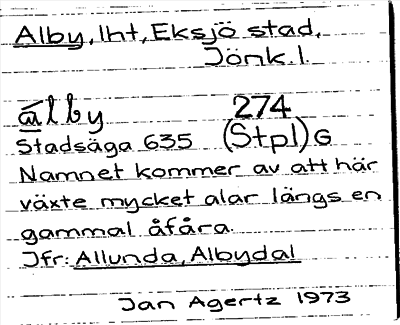 Alby, lht, Eksjö stad,
Jönk. l.
álby 274
Stadsäga 635 (Stpl) G
Namnet kommer av att här
växte mycket alar längs en
gammal åfåra.
Jfr: Allunda, Albydal
Jan Agertz 1973